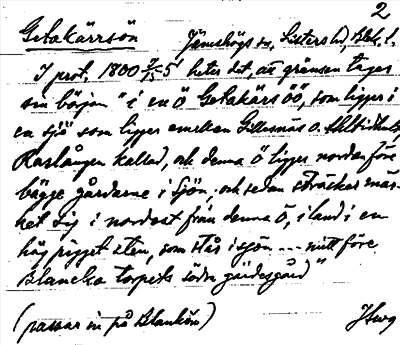 2
Getakärrsön
Jämshögs sn, Listers hd, Blek. l.
I prot. 1800 5/15 heter det, att gränsen tages
sin början "i en ö Getakärs öö, som ligger i
en sjö som ligger emellan Gillesnäs o.
Raslången kallad, och denna ö ligger norden före
bägge gårdarne i sjön, och sedan sträcker mär-
ket sig i nordost från denna ö, i land i en
hög pigget sten, som står i sjön --- mitt före
Blancka torpets södra gärdesgård"
(passar in på Blankön)